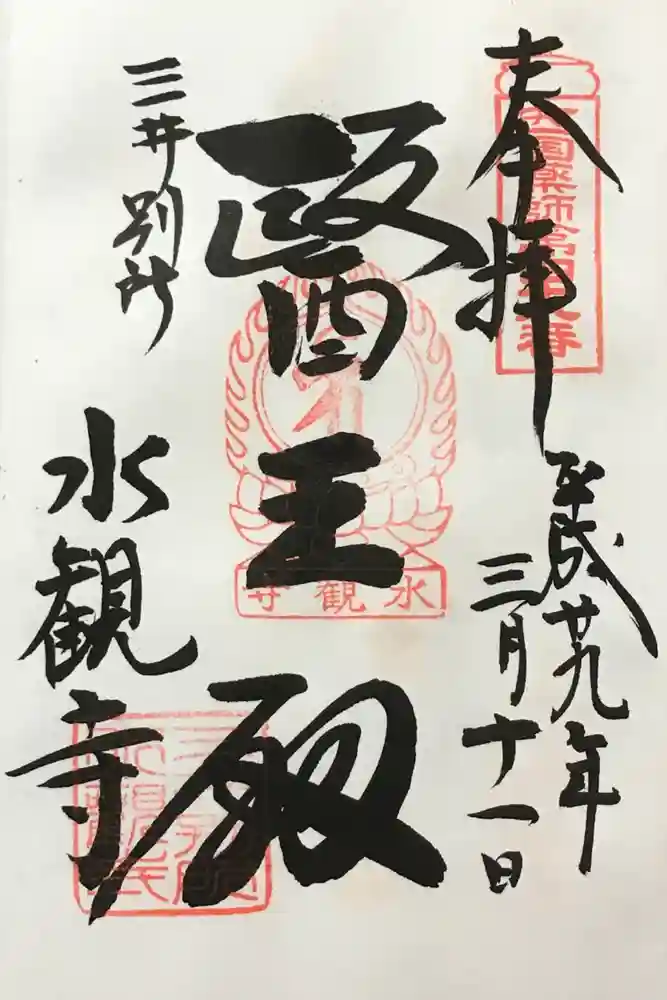 奉拝
平成廿九年
三月十一日
醫王殿
水観寺
三井別所
水観寺